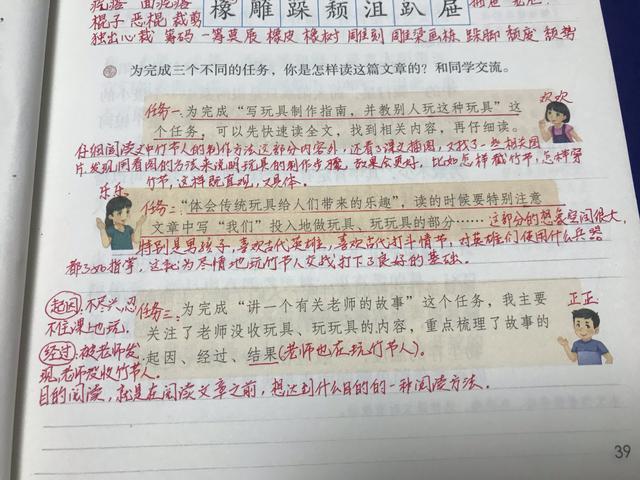 疙瘩 面疙瘩
棍子 恶棍 裁剪
橡 雕 跺 颓 沮 趴 屉
独出心裁 筹码 一筹莫展 橡皮 橡树 雕刻 雕梁画栋 跺脚 颓废 颓势
为完成三个不同的任务，你是怎样读这篇文章的？和同学交流。
任务一：为完成“写玩具制作指南，并教别人玩这种玩具”这
欢欢
个任务，可以先快速读全文，找到相关内容，再仔细读。
仔细阅读文中竹节人的制作方法这部分内容外，还看了课文插图，又找了一些相关图
片。发现用看图的方法来说明玩具的制作步骤，效果会更好，比如怎样截竹节，怎样穿
竹节，这样既直观，又具体。
乐乐
任务二：“体会传统玩具给人们带来的乐趣”，读的时候要特别注意
文章中写“我们”投入地做玩具、玩玩具的部分……这部分的想象空间很大，
特别是男孩子，喜欢古代英雄，喜欢古代打斗情节，对英雄们使用什么兵器
都了如指掌，这就为尽情地玩竹节人交战打下了良好的基础。
起因：不尽兴，忍
不住课上也玩。
任务三：为完成“讲一个有关老师的故事”这个任务，我主要
正正
关注了老师没收玩具、玩玩具的内容，重点梳理了故事的
经过：被老师发
现，老师没收竹节人。
起因、经过、结果（老师也在玩竹节人）。
目的阅读，就是在阅读文章之前，想达到什么目的的一种阅读方法。
39